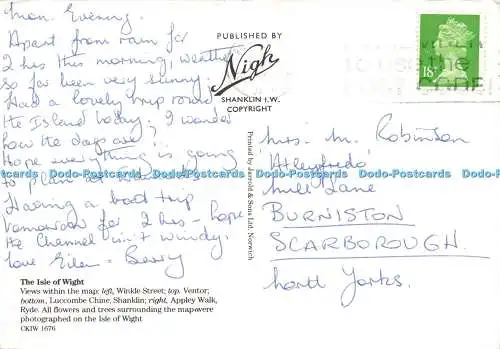 Mon. Evening.
Apart from rain for
2 hrs this morning, weather
so far been very sunny.
Had a lovely trip round
the Island today. I wonder
how the dogs are,
Hope everything is going
to plan at
Having a boat trip
tomorrow for 2 hrs - hope
the Channel isn't windy.
love Eileen - Berry
The Isle of Wight
Views within the map: left, Winkle Street; top. Ventor;
bottom, Luccombe Chine, Shanklin; right, Appley Walk,
Ryde. All flowers and trees surrounding the map were
photographed on the Isle of Wight
CKIW 1676
PUBLISHED BY
Nigh
SHANKLIN I.W.
COPYRIGHT
Printed by Jarrold & Sons Ltd. Norwich
18P
to use the
Mrs. M. Robinson
Mill Lane
BURNISTON
SCARBOROUGH.
North Yorks.
Dodo-Postcards Dodo-Postcards Dodo-Postcards Dodo-Postcards Dodo-Postcards Dodo-Postcards